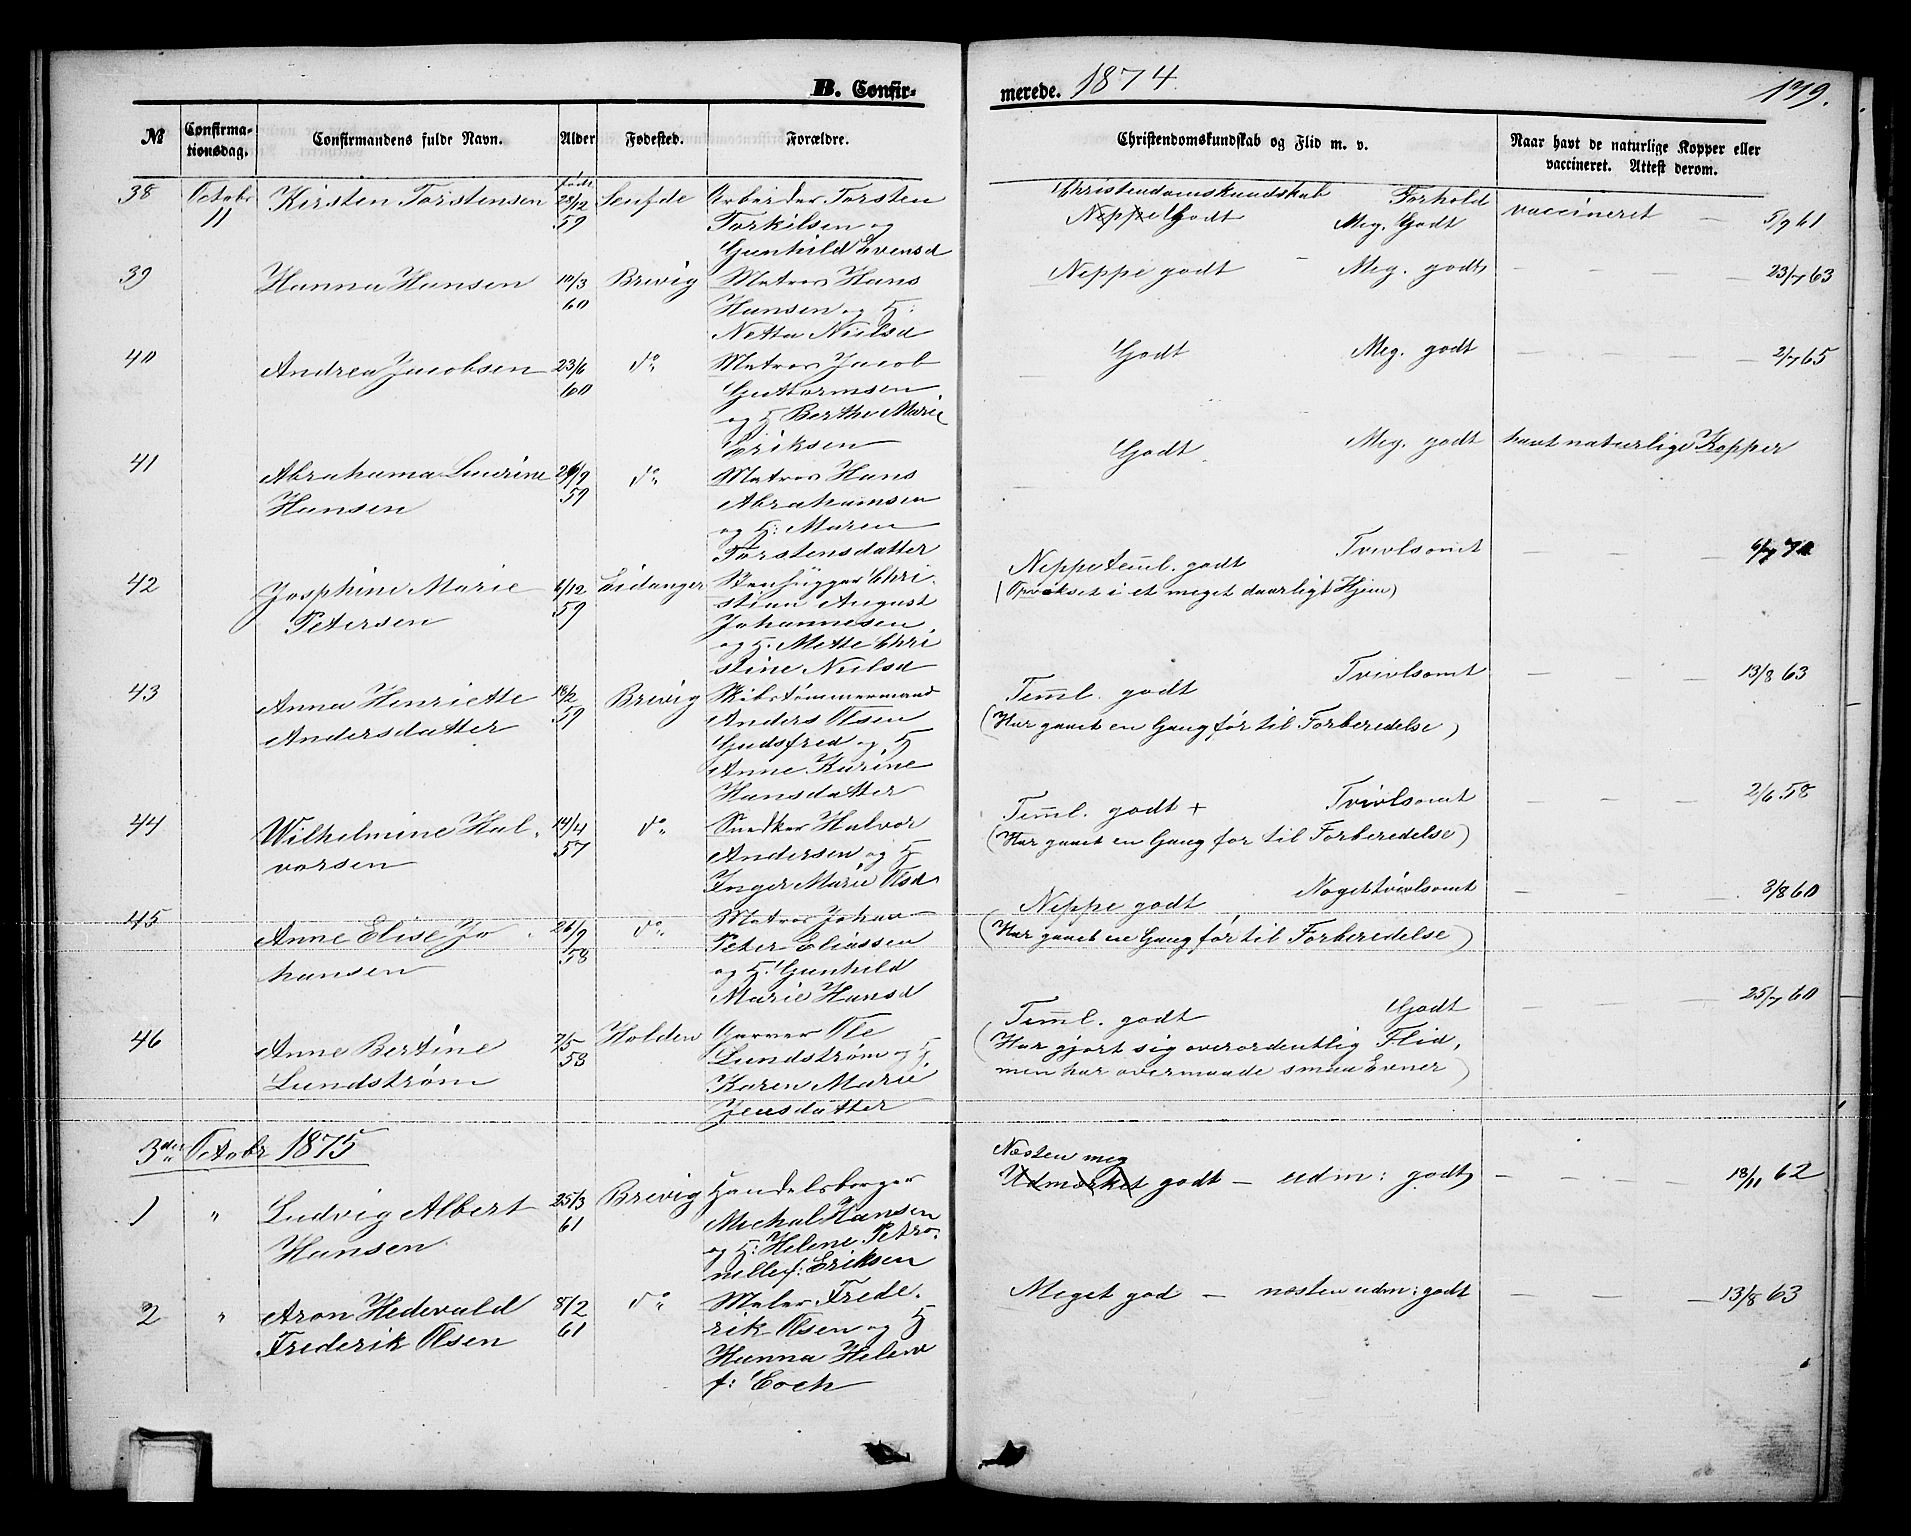 B. Confir-
merede. 1874.
139.
№
Confirma-
tionsdag.
Confirmandens fulde Navn.
Alder
Fødested.
Forældre.
Christendomskundskab og Flid m. v.
Naar havt de naturlige Kopper eller
vaccineret. Attest derom.
38 Octobr Kirsten Torstensen født Arbeider Torsten Christendomskundskab Forhold vaccineret — 5/9 61
11 28/12 Torkilsen og Godt Meg. Godt
59 Gunhild Evensd
39 Hanna Hansen 10/3 Brevig Matros Hans Neppe godt - Meg. godt — — — — 23/7 63
60 Hansen og H:
Netta Nielsd
40 Andrea Jacobsen 23/6 do Matros Jacob Godt Meg. godt — — — — 2/7 65
60 Guttormsen
og H Berthe Marie
Eriksen
41 Abrahama Laurine 29/9 do Matros Hans Godt Meg. godt havt naturlige Kopper
Hansen 59 Abrahamsen
og H: Maren
Torstensdatter
42 Josephine Marie 4/12 Eidanger Stenhugger Chri- Neppe teml. godt Tvivlsomt — — — —
Petersen 59 stian August (Opvokset i et meget daarligt Hjem)
Johannesen
og H. Mette Chri
stine Nielsd
43 Anna Henriette 18/2 Brevig Skibstømmermand Teml. godt Tvivlsomt — — — — 13/8 63
Andersdatter 59 Anders Olsen (Har gaaet en Gang før til Forberedelse)
Gudsfred og H
Anne Karine
Hansdatter
44 Wilhelmine Hal- 14/4 do Snedker Halvor Teml. godt + Tvivlsomt — — — — 2/6 58
vorsen 57 Andersen og H (Har gaaet en Gang før til Forberedelse)
Inger Marie Olsd.
45 Anne Elise Jo- 26/9 do Matros Johan Neppe godt Noget tvivlsomt — — — — 3/8 60
hansen 58 Peter Eliassen (Har gaaet en Gang før til Forberedelse)
og H. Gunhild
Marie Hansd
46 Anne Bertine 7/5 Holden Garver Ole Teml. godt Godt — — — 25/7 60
Lundstrøm 58 Lundstrøm og H. (Har gjort sig overordentlig Flid,
Karen Marie men har overmaade smaa Evner)
Jensdatter
3die Octobr 1875
Næsten meg
1 " Ludvig Albert 25/3 Brevig Handelsborger Udmærket godt — udm: godt — — — — 18/11 62
Hansen 61 Michal Hansen
og H: Helene Petro-
nelle f: Eriksen
2 " Aron Hedevald 8/2 do Maler Frede- Meget god — næsten udm: godt — — — — 13/8 63
Frederik Olsen 61 rik Olsen og H
Hanna Helene
f: Coch